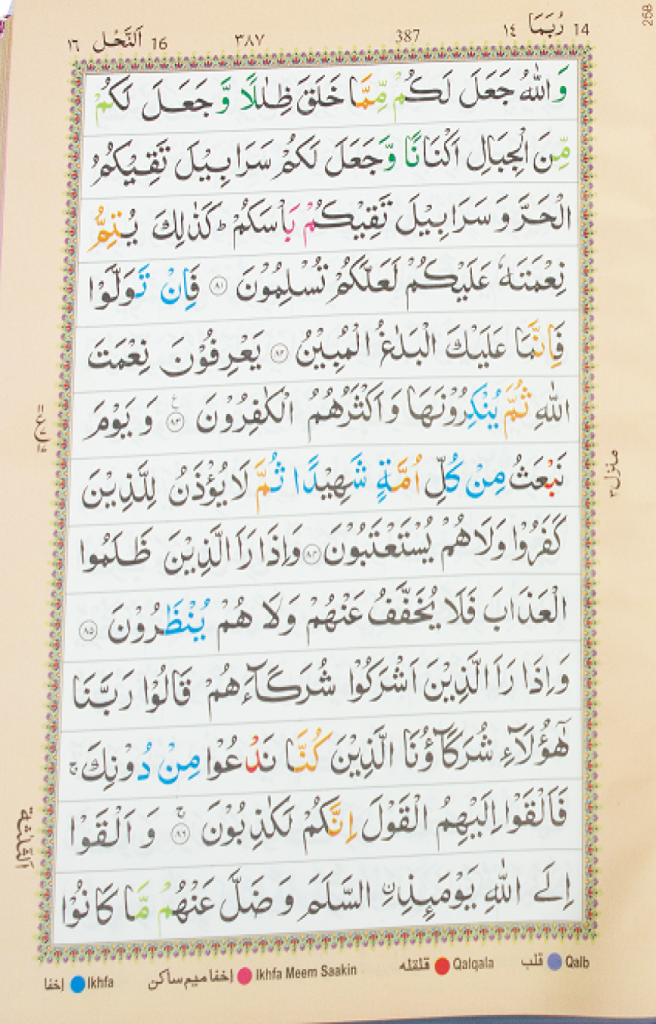 258
١٦ اَلنَّحْل 16 ٣٨٧ 387 رُبَمَا ١٤ 14
وَاللّٰهُ جَعَلَ لَكُمْ مِّمَّا خَلَقَ ظِلٰلًا وَّ جَعَلَ لَكُمْ
مِّنَ الْجِبَالِ اَكْنَانًا وَّجَعَلَ لَكُمْ سَرَابِيْلَ تَقِيْكُمُ
الْحَرَّ وَ سَرَابِيْلَ تَقِيْكُمْ بَاْسَكُمْ ؕ كَذٰلِكَ يُتِمُّ
نِعْمَتَهٗ عَلَيْكُمْ لَعَلَّكُمْ تُسْلِمُوْنَ ﴿٨١﴾ فَاِنْ تَوَلَّوْا
فَاِنَّمَا عَلَيْكَ الْبَلٰغُ الْمُبِيْنُ ﴿٨٢﴾ يَعْرِفُوْنَ نِعْمَتَ
اللّٰهِ ثُمَّ يُنْكِرُوْنَهَا وَاَكْثَرُهُمُ الْكٰفِرُوْنَ ﴿٨٣﴾ وَ يَوْمَ
نَبْعَثُ مِنْ كُلِّ اُمَّةٍ شَهِيْدًا ثُمَّ لَا يُؤْذَنُ لِلَّذِيْنَ
كَفَرُوْا وَلَا هُمْ يُسْتَعْتَبُوْنَ ﴿٨٤﴾ وَاِذَا رَاَ الَّذِيْنَ ظَلَمُوا
الْعَذَابَ فَلَا يُخَفَّفُ عَنْهُمْ وَلَا هُمْ يُنْظَرُوْنَ ﴿٨٥﴾
وَاِذَا رَاَ الَّذِيْنَ اَشْرَكُوْا شُرَكَآءَهُمْ قَالُوْا رَبَّنَا
هٰٓؤُلَآءِ شُرَكَآؤُنَا الَّذِيْنَ كُنَّا نَدْعُوْا مِنْ دُوْنِكَ ۚ
فَاَلْقَوْا اِلَيْهِمُ الْقَوْلَ اِنَّكُمْ لَكٰذِبُوْنَ ﴿٨٦﴾ وَ اَلْقَوْا
اِلَى اللّٰهِ يَوْمَئِذِ ۨالسَّلَمَ وَ ضَلَّ عَنْهُمْ مَّا كَانُوْا
منزل ٣
اَلثَّلٰثَة
إخفا Ikhfa إخفا ميم ساكن Ikhfa Meem Saakin قلقله Qalqala قلب Qalb